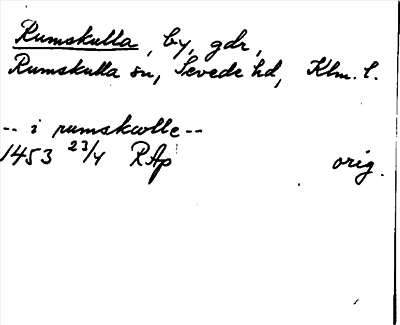 Rumskulla, by, gdr,
Rumskulla sn, Sevede hd, Klm. l.
-- i rumskwlle --
1453 23/4 RAp orig.